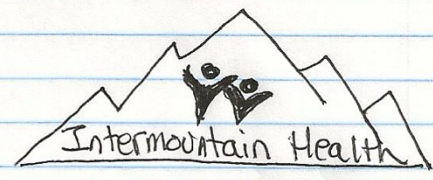 Intermountain Health